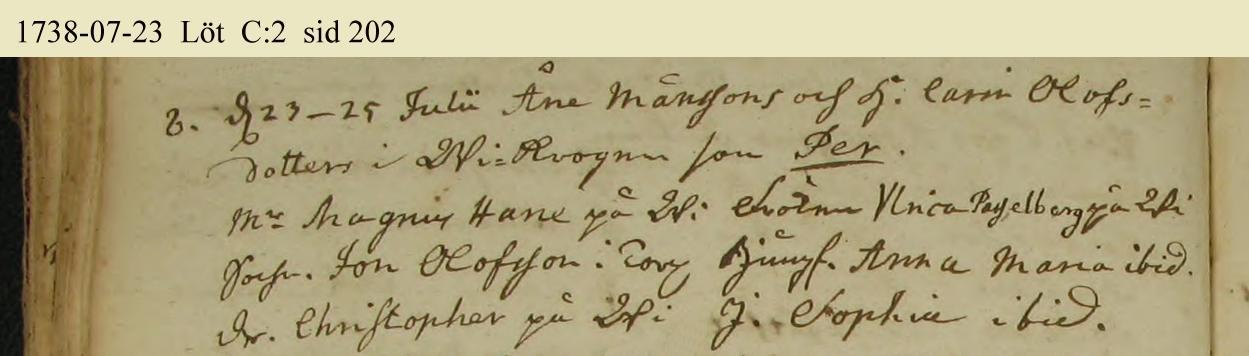 1738-07-23 Löt C:2 sid 202
8. D 23–25 Julii Åne Månssons och H: Carin Olofs=
dotters i Wi=Krogen son Per.
Mr Magnus Hane på Wi Fröken Ulrica Pagelberg på Wi
Sochn. Jon Olofsson i Torg Jungf. Anna Maria ibid.
Dr. Christopher på Wi J. Sophia ibid.